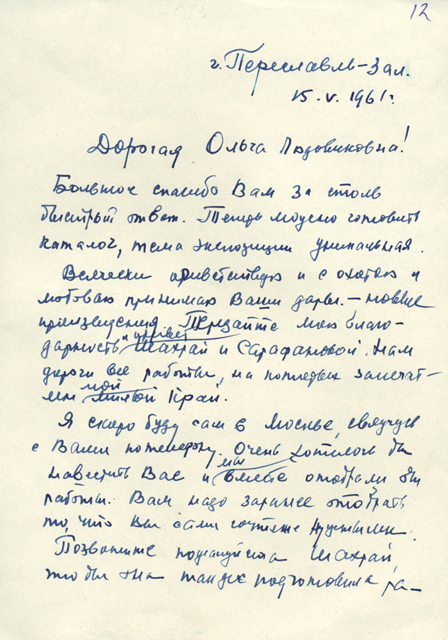 12
г. Переславль-Зал.
15.V.1961 г.
Дорогая Ольга Людовиковна!
Большое спасибо Вам за столь
быстрый ответ. Теперь можно готовить
каталог, тема экспозиции уникальная.
Всячески приветствую и с охотою и
любовью принимаю Ваши дары. – новые
произведения. Передайте мою благо-
дарность и привет Махрай и Сарафановой. Нам
дороги все работы, на которых запечат-
лен мой милый Край.
Я скоро буду сам в Москве, свяжусь
с Вами по телефону. Очень хотелось бы
навестить Вас и мы вместе отобрали бы
работы. Вам надо заранее отобрать
то, что Вы сами сочтете нужным.
Позвоните пожалуйста Махрай,
чтобы она также подготовила ра-